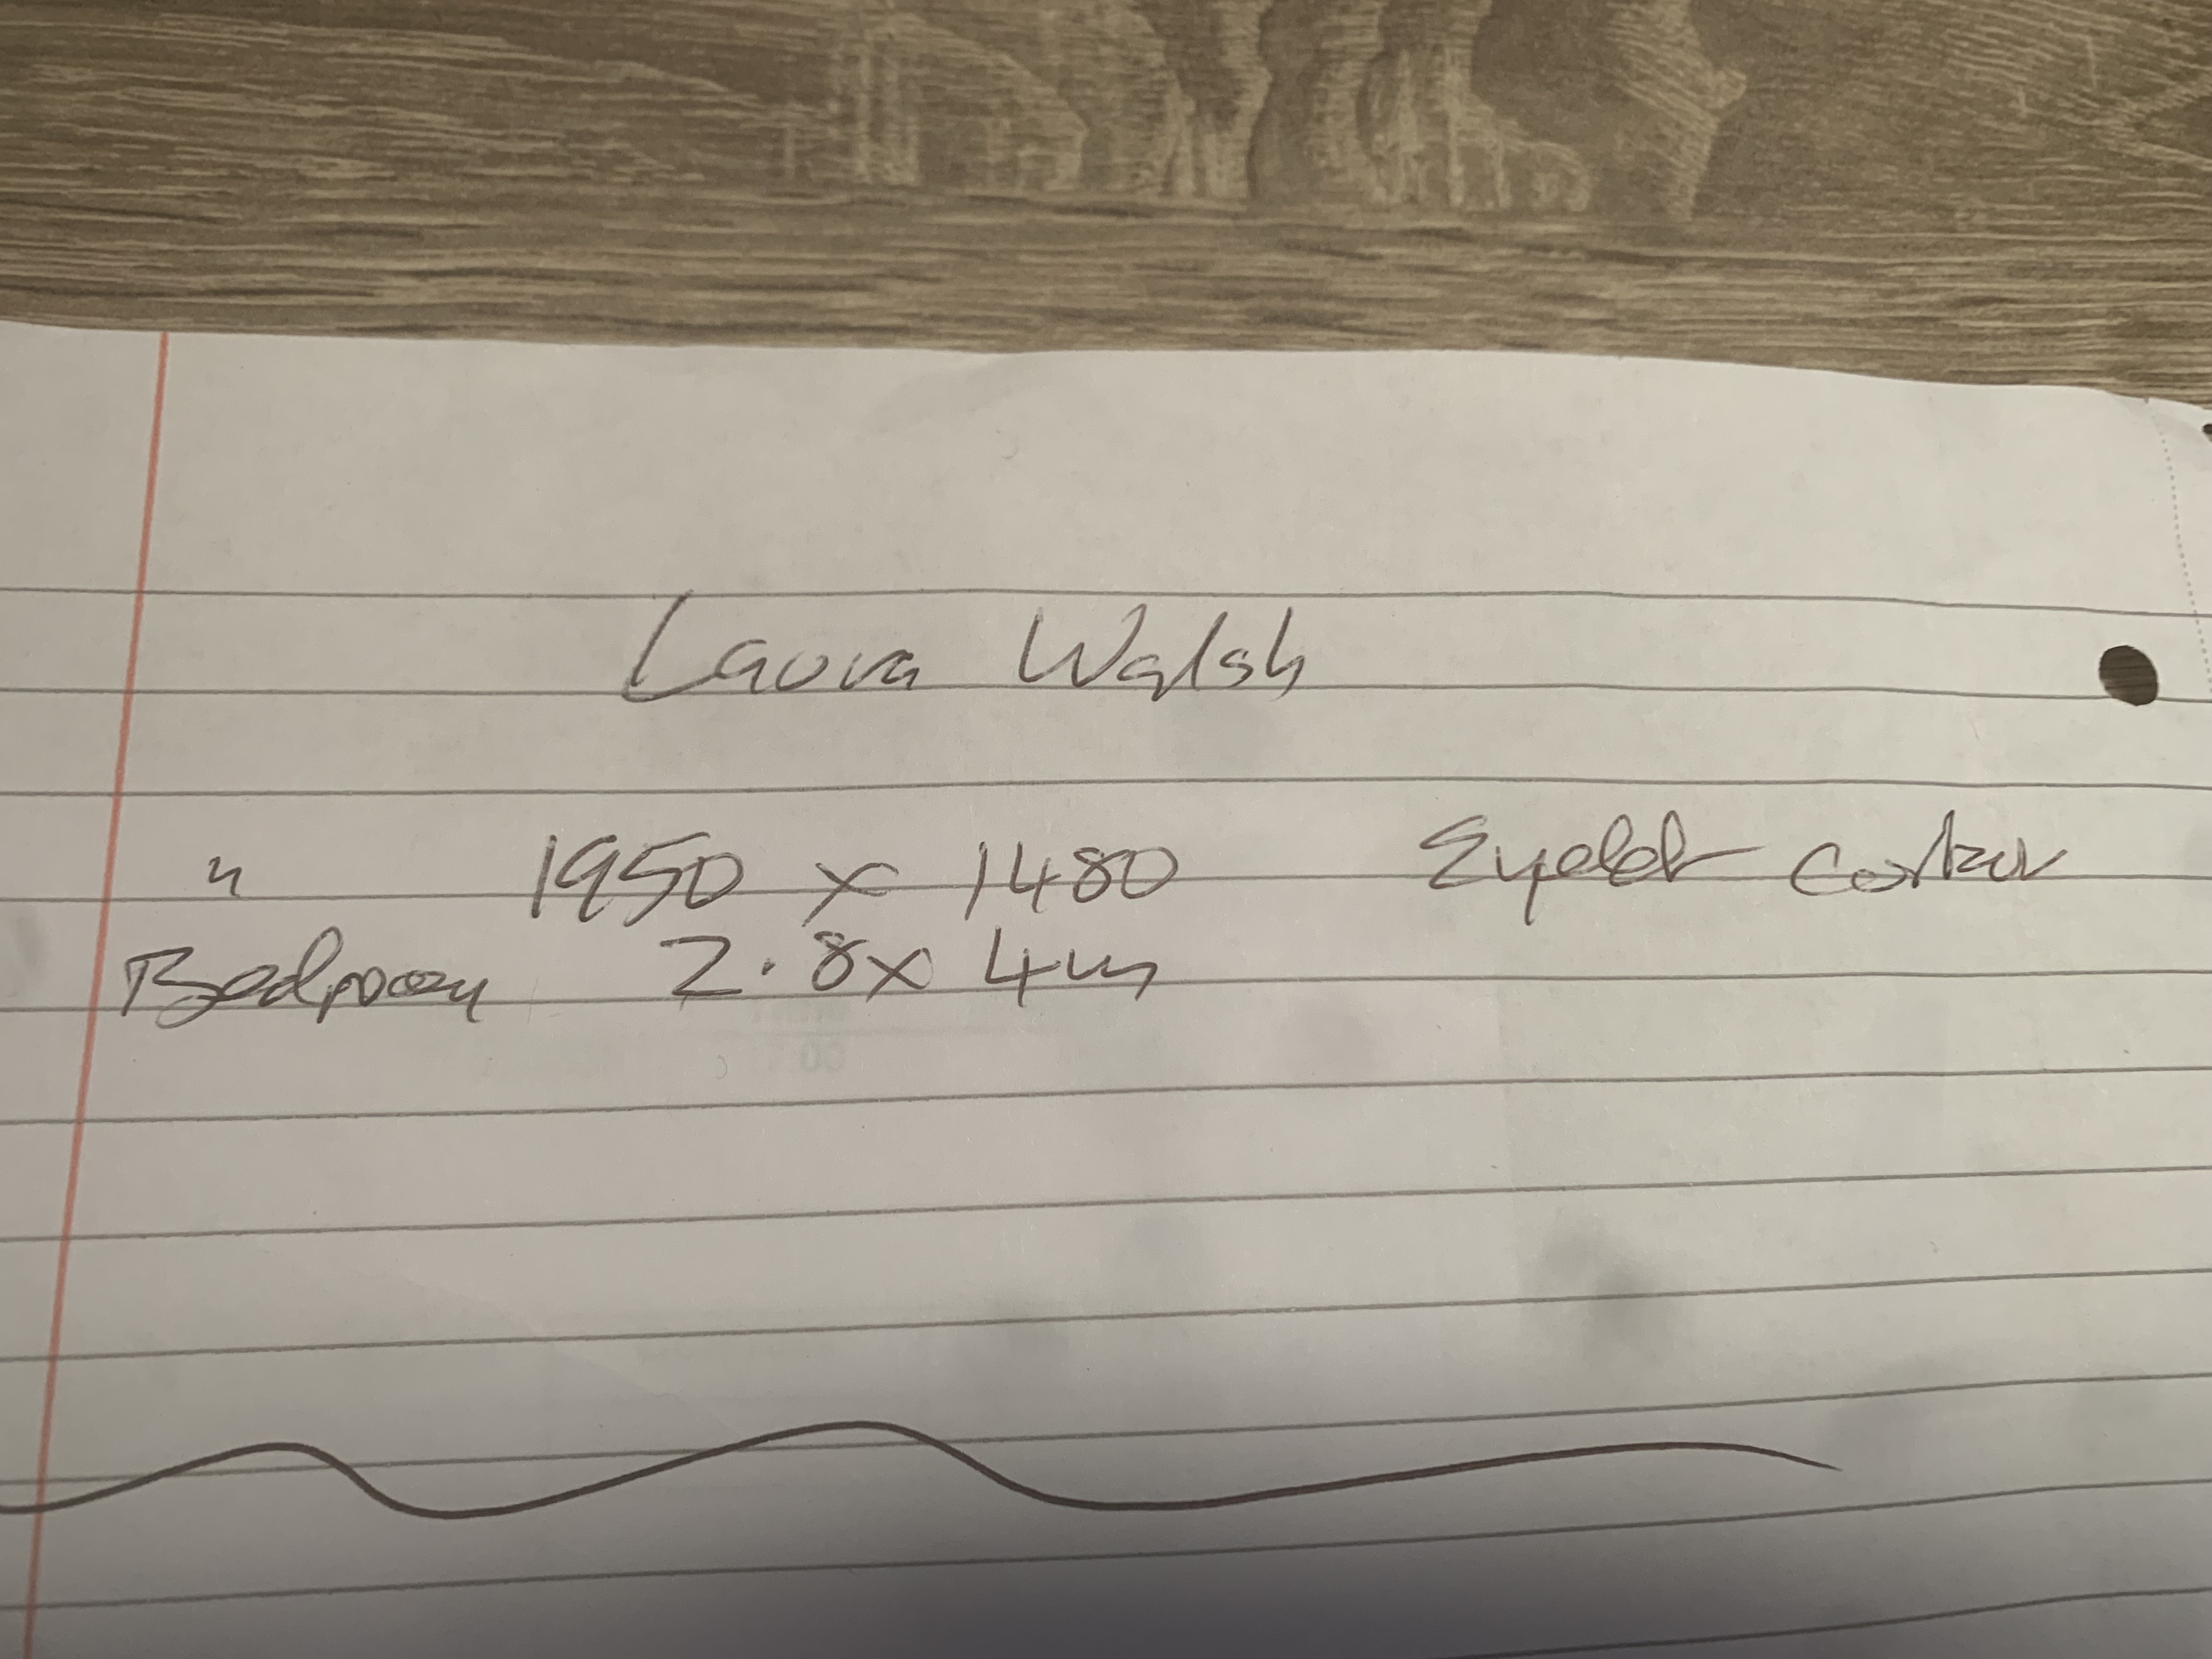 Laura Walsh
" 1950 x 1480 Eyelet
Bedroom 2.8x 4m